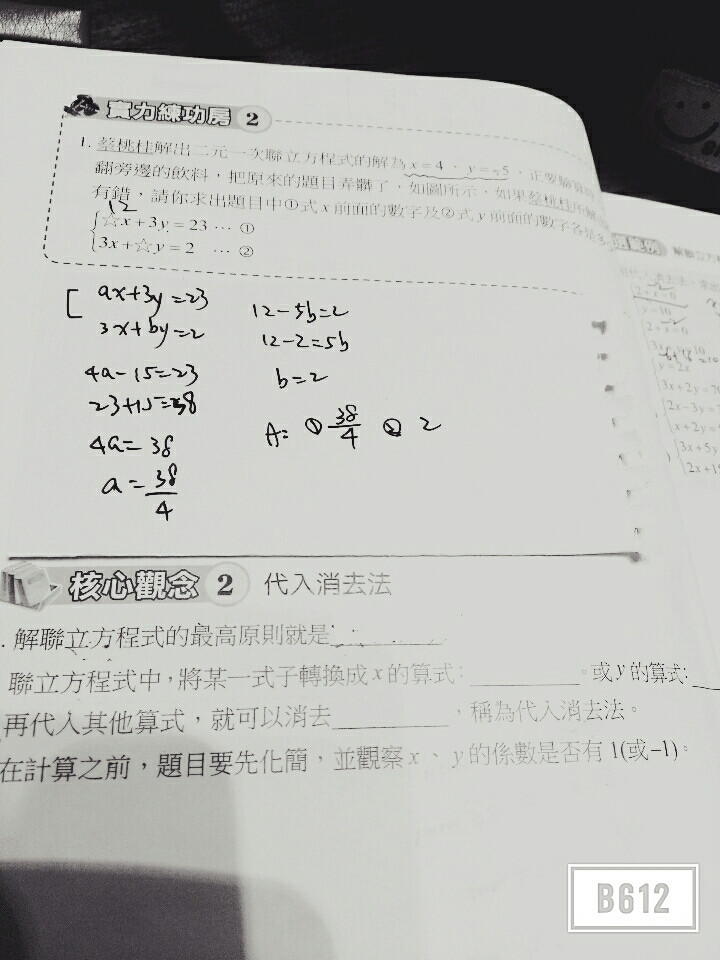 實力練功房 2
1. 蔡桃桂解出二元一次聯立方程式的解為 x=4、y=-5,正要驗算時
翻旁邊的飲料,把原來的題目弄髒了,如圖所示,如果蔡桃桂所解
有錯,請你求出題目中①式 x 前面的數字及②式 y 前面的數字各是多
12
☆x+3y=23 … ①
3x+☆y=2 … ②
ax+3y=23
3x+by=2
4a-15=23
23+15=38
4a=38
a=38/4
12-5b=2
12-2=5b
b=2
A= ① 38/4 ② 2
核心觀念 2 代入消去法
. 解聯立方程式的最高原則就是
聯立方程式中,將某一式子轉換成 x 的算式: 。或 y 的算式:
再代入其他算式,就可以消去 ,稱為代入消去法。
在計算之前,題目要先化簡,並觀察 x、y 的係數是否有 1(或-1)。
範例 解聯立方
2+x=0
y=10
2+x=0
y=2x
3x+2y=70
2x-3y=7
x+2y=
3x+5y
2x+19
B612